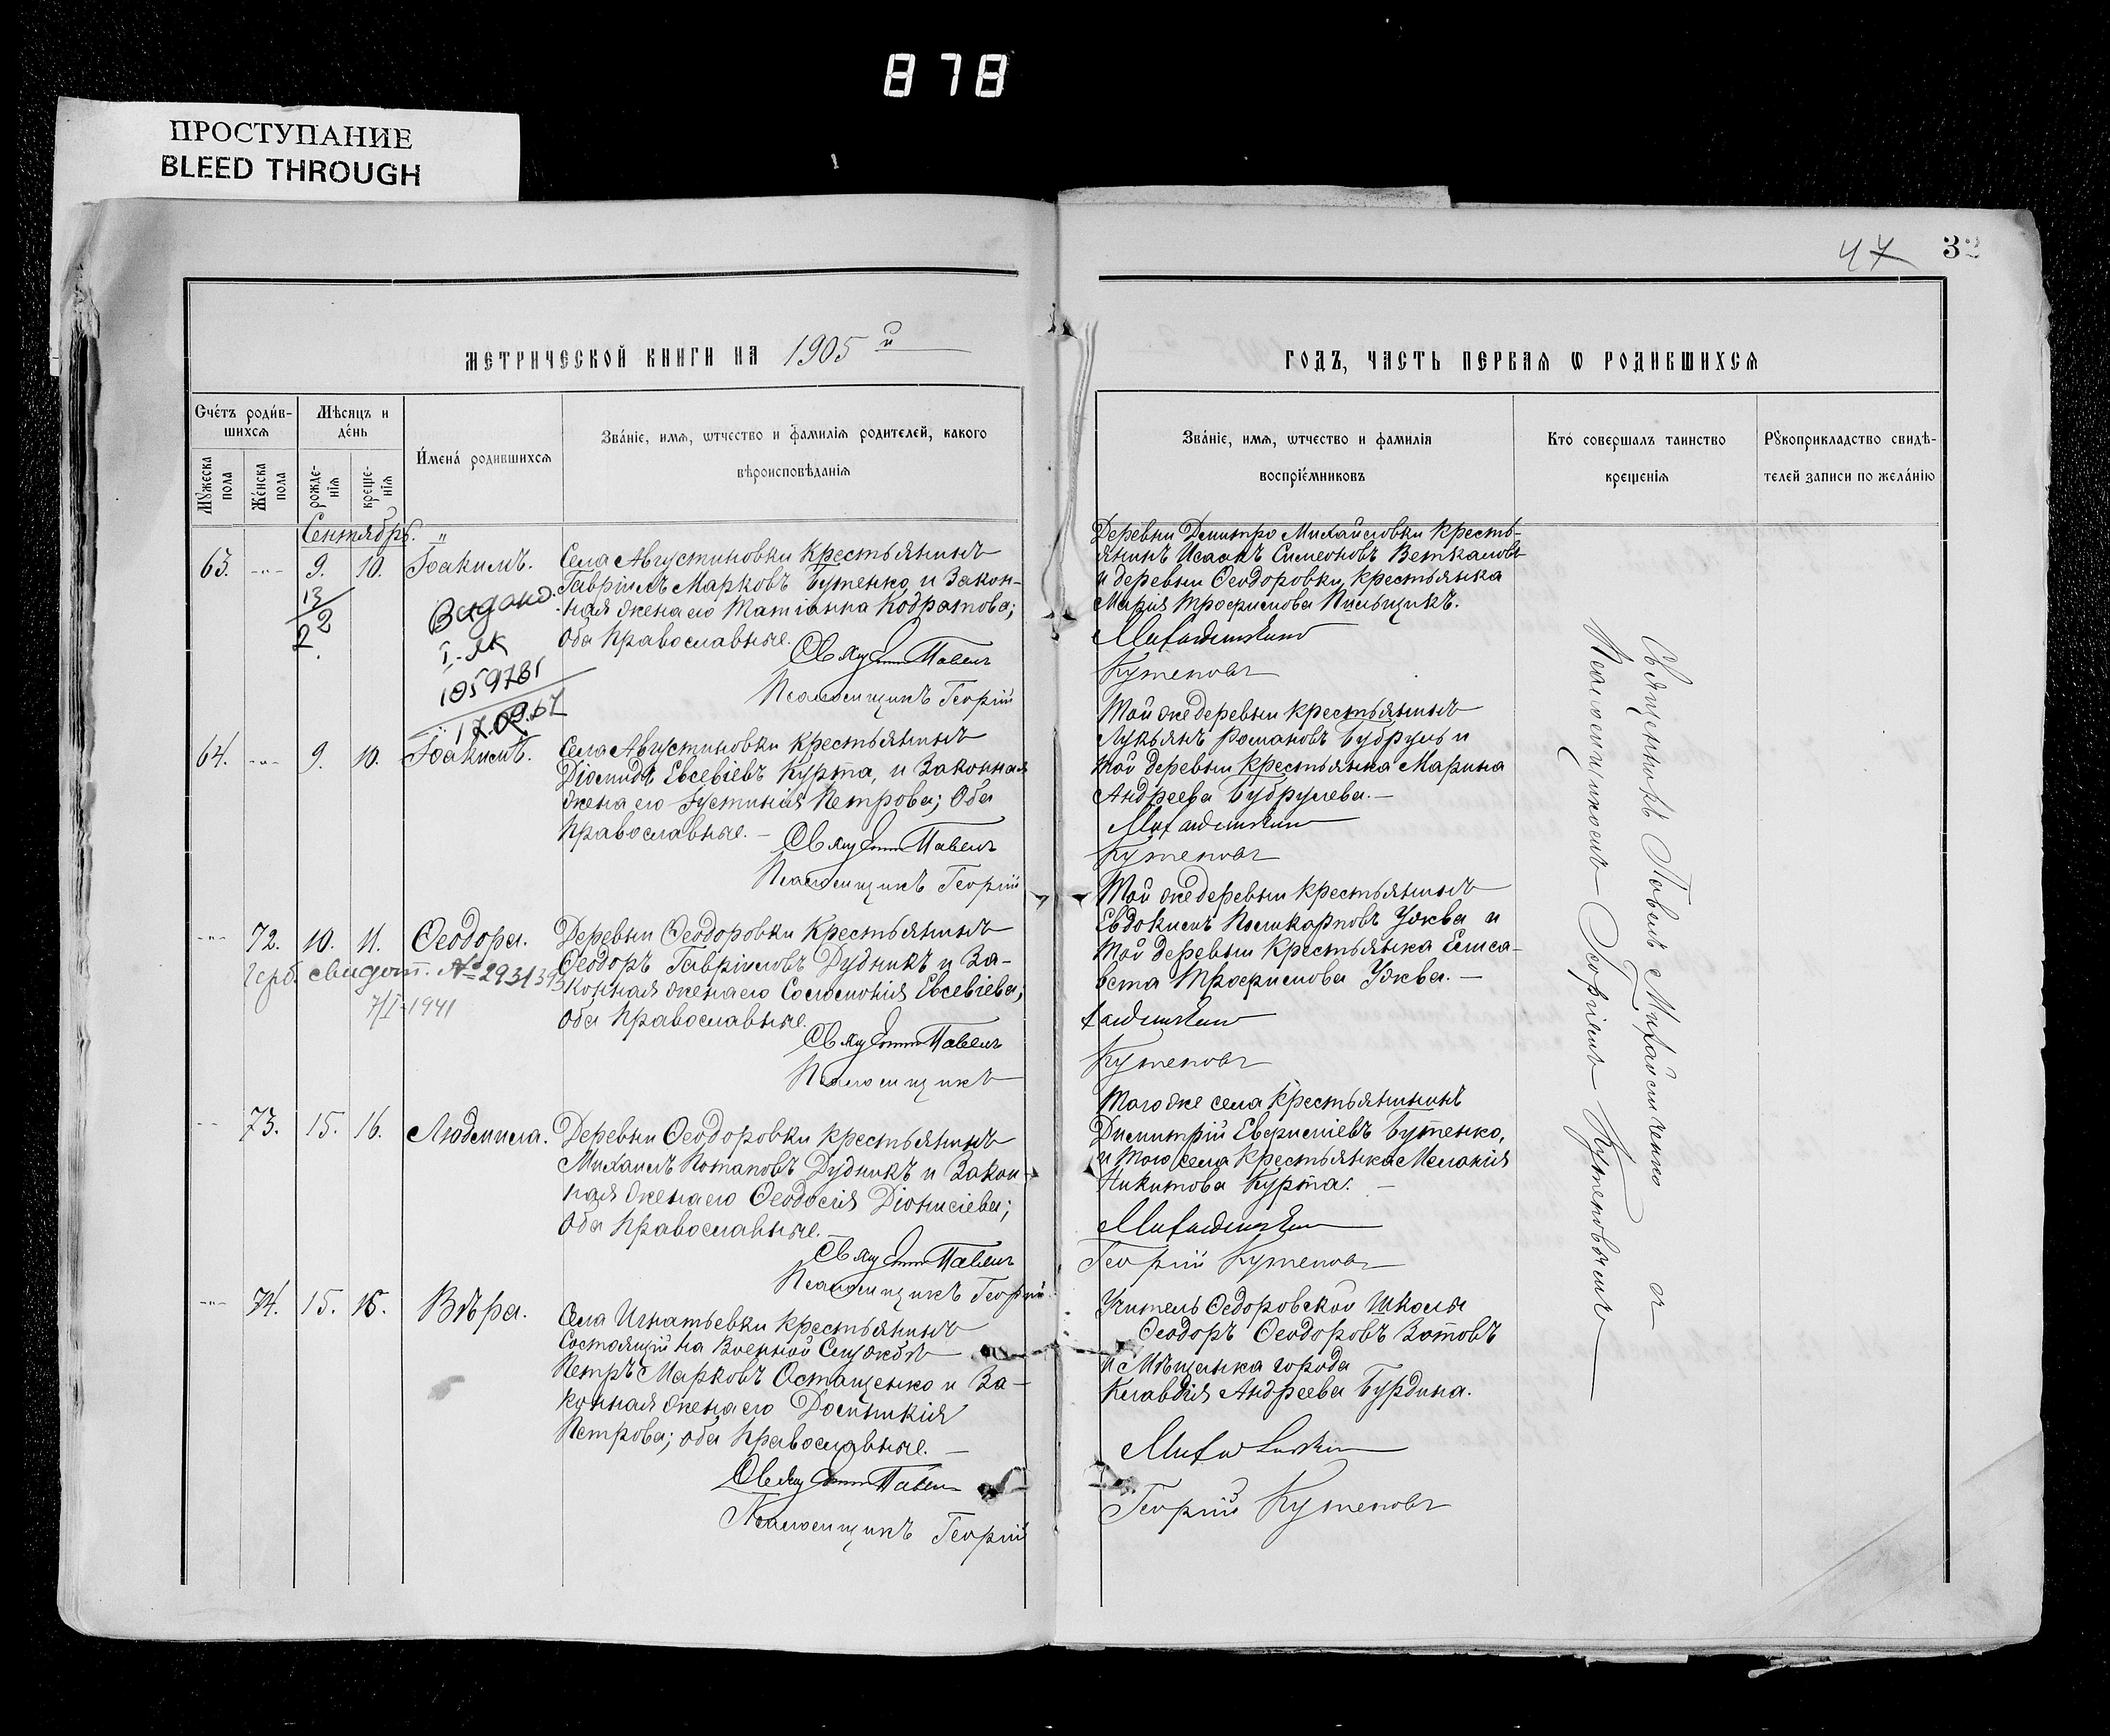 878
ПРОСТУПАНИЕ
BLEED THROUGH
47 32
МЕТРИЧЕСКОЙ КНИГИ НА 1905 й
Счетъ родив-
шихся
Мѣсяцъ и
день
Имена родившихся
Званіе, имя, ѡтчество и фамилія родителей, какого
вѣроисповѣданія
Мужеска пола
Женска пола
рожде-
нія
креще-
нія
Сентябрь.
63. -"- 9. 10. Іоакимъ.
Села Августиновки крестьянинъ
Гавріилъ Марковъ Бутенко, и закон-
ная жена его Татіанна Кодратова;
оба православные.
Священ Павелъ
Псаломщикъ Георгій
13
2 2
Видано
І-ЯК
1059781
17.09.67
64. -"- 9. 10. Іоакимъ.
Села Августиновки крестьянинъ
Діомидъ Евсевіевъ Курта, и законная
жена его Іустинія Петрова; оба
православные. —
Священ Павелъ
Псаломщикъ Георгій
-"- 72. 10. 11. Ѳеодора.
Деревни Ѳеодоровки крестьянинъ
Ѳеодоръ Гавріиловъ Дудникъ и за-
конная жена его Соломонія Евсевіева;
оба православные.
Священ Павелъ
Псаломщикъ
Герб. свидот. № 2931393
7/I-1941
-- 73. 15. 16. Людмила.
Деревни Ѳеодоровки крестьянинъ
Михаилъ Потаповъ Дудникъ и закон-
ная жена его Ѳеодосія Діонисіева;
оба православные.
Священ Павелъ
Псаломщикъ Георгій
-"- 74. 15. 16. Вѣра.
Села Игнатьевки крестьянинъ
состоящій на военной службѣ
Петръ Марковъ Остащенко и за-
конная жена его Домникія
Петрова; оба православные. —
Священ Павелъ
Псаломщикъ Георгій
ГОДЪ, ЧАСТЬ ПЕРВАЯ Ѡ РОДИВШИХСЯ
Званіе, имя, ѡтчество и фамилія
воспріемниковъ
Кто совершалъ таинство
крещенія
Рукоприкладство свидѣ-
телей записи по желанію
Деревни Дмитро Михайловки кресть-
янинъ Исаакъ Симеоновъ Веткаловъ
и деревни Ѳеодоровки крестьянка
Марія Трофимова Пильщикъ.
Михайличенко
Кутеповъ
Той же деревни крестьянинъ
Лукьянъ Романовъ Бубруль и
той деревни крестьянка Марина
Андреева Бубрулева. —
Михайличенко
Кутеповъ
Той же деревни крестьянинъ
Евдокимъ Поликарповъ Ужва и
той деревни крестьянка Елиса-
вета Трофимова Ужва. —
Кутеповъ
Того же села крестьянинъ
Димитрій Евфиміевъ Бутенко,
и того села крестьянка Меланія
Никитова Курта. —
Михайличенко
Георгій Кутеповъ
Учитель Ѳедоровской школы
Ѳеодоръ Ѳеодоровъ Зотовъ
и мѣщанка города
Клавдія Андреева Бурдина.
Георгій Кутеповъ
Священникъ Павелъ Михайличенко съ
Псаломщикомъ Георгіемъ Кутеповымъ